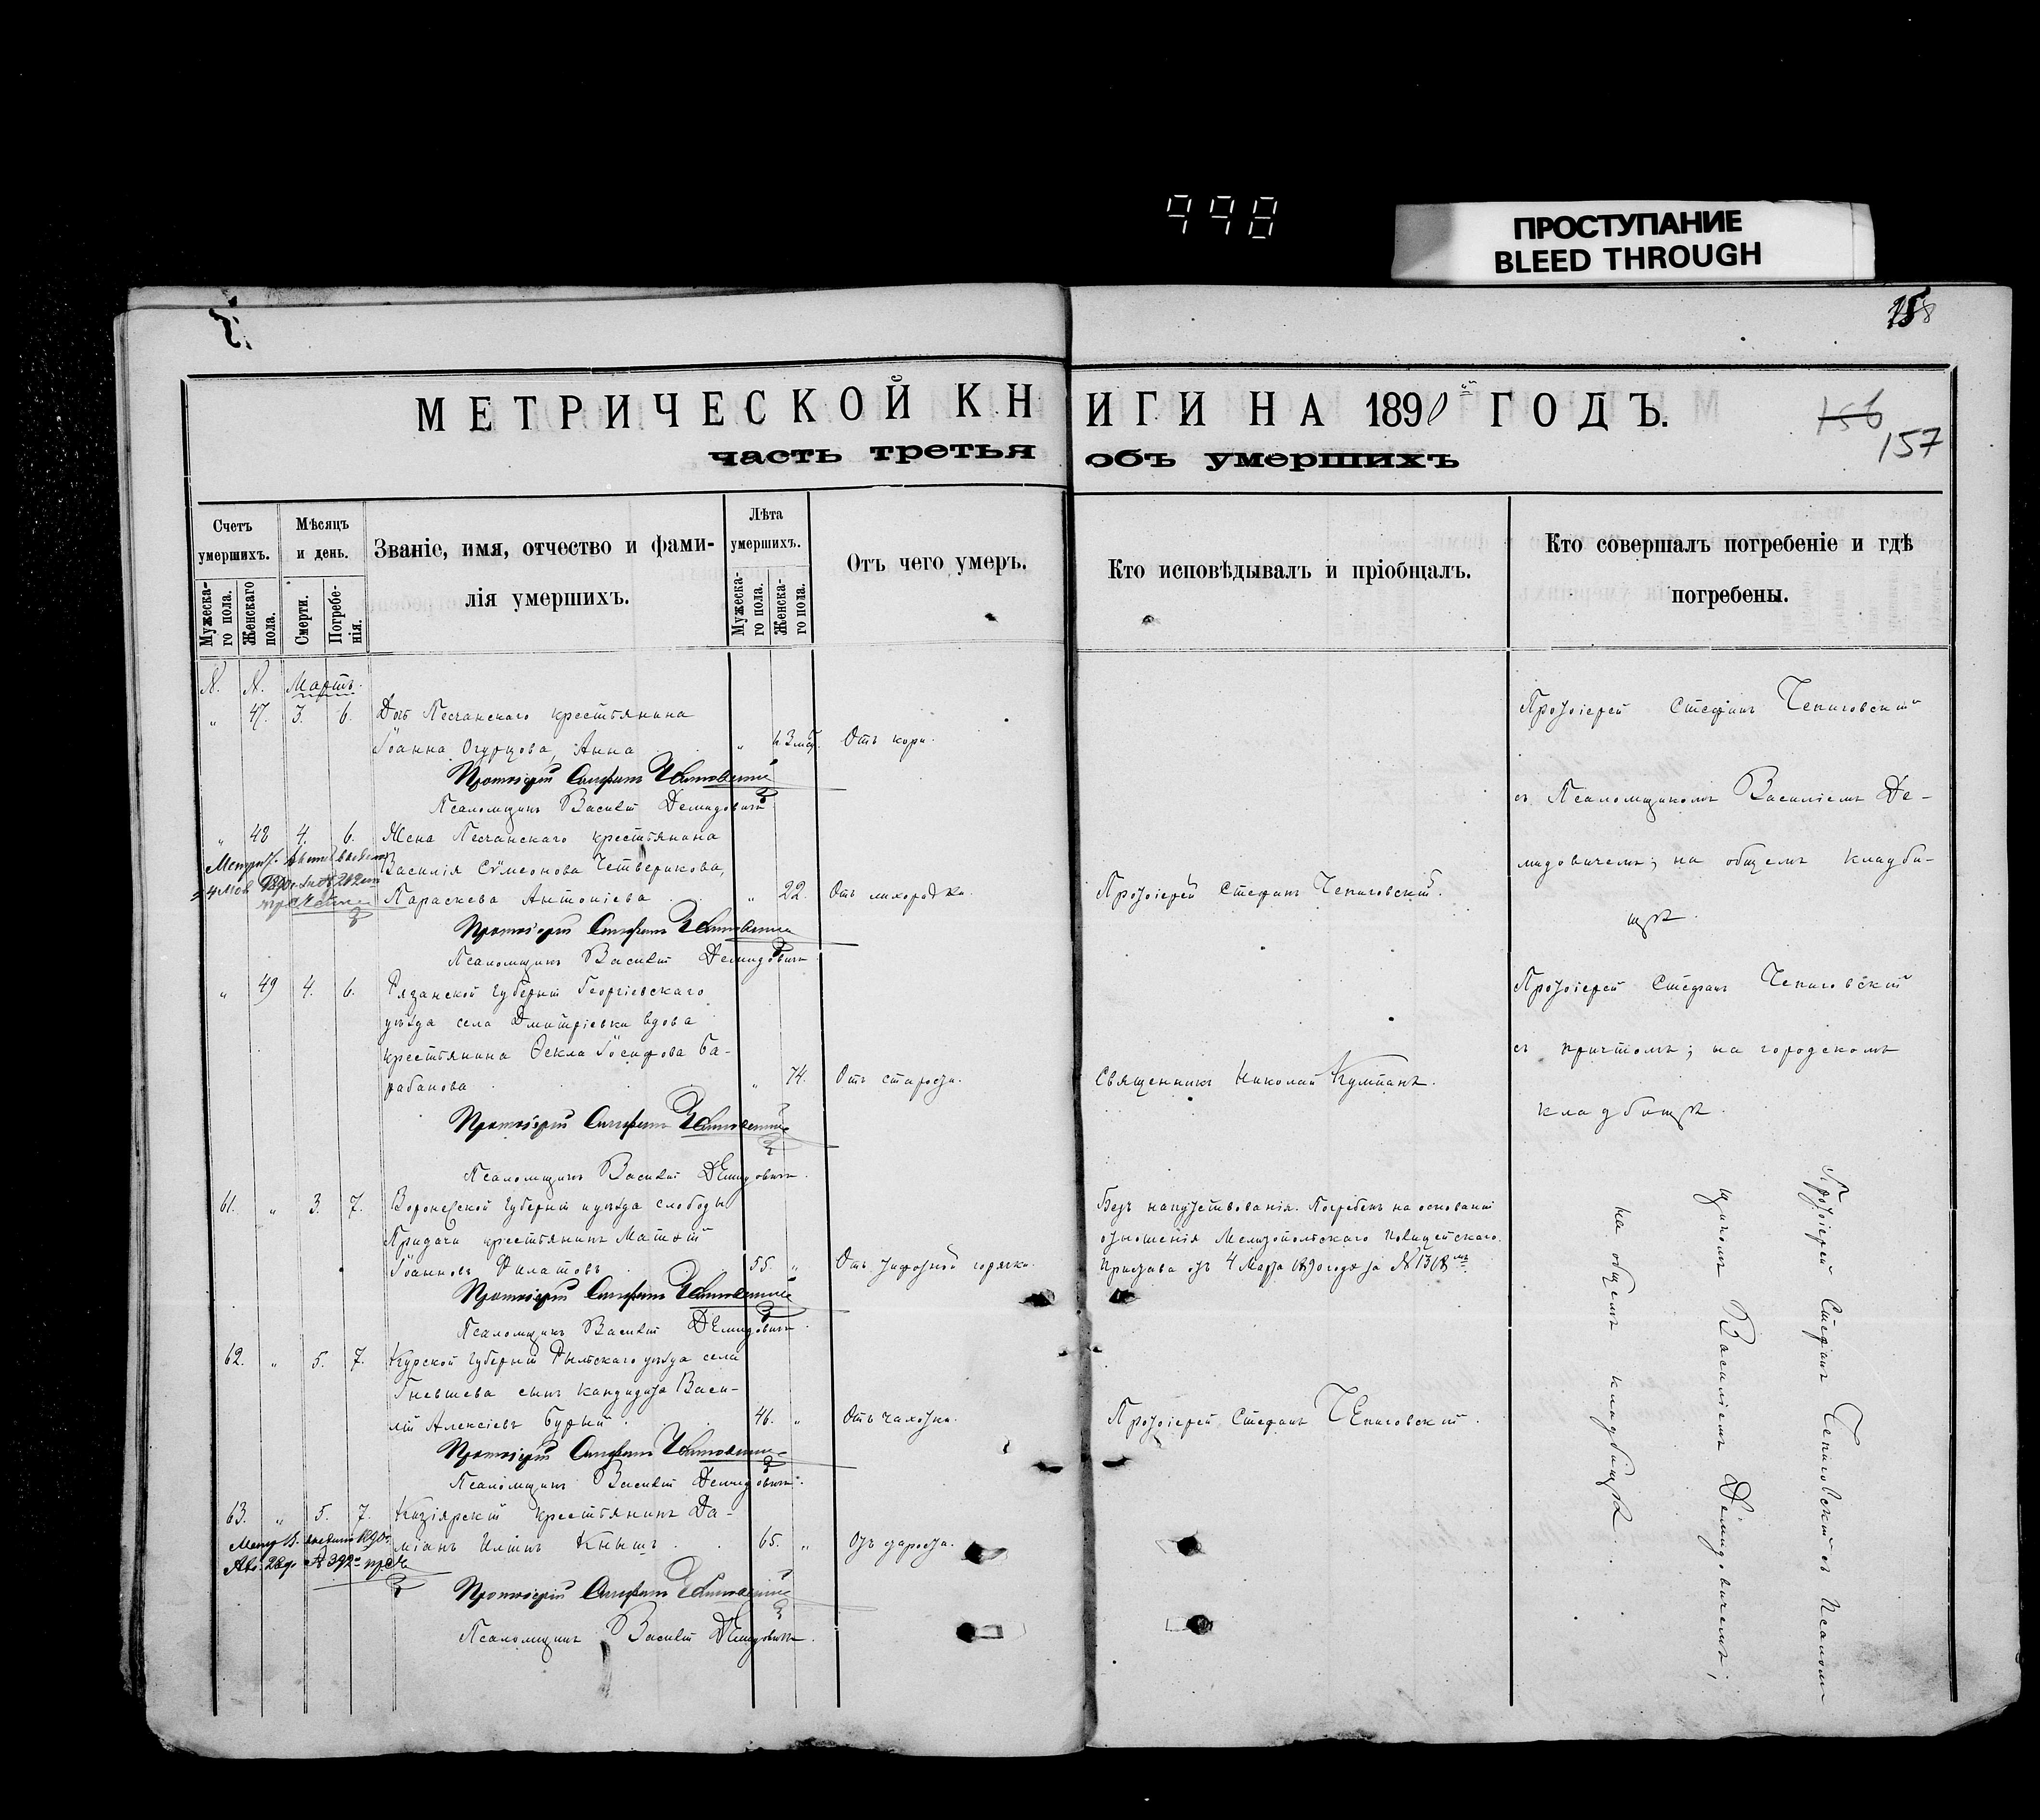 998
ПРОСТУПАНИЕ
BLEED THROUGH
158
МЕТРИЧЕСКОЙ КНИГИ НА 1890й ГОДЪ.
156
157
часть третья объ умершихъ
Счетъ умершихъ.
Мужеска-го пола.
Женскаго пола.
Мѣсяцъ и день.
Смерти.
Погребе-нія.
Званіе, имя, отчество и фами-
лія умершихъ.
Лѣта умершихъ.
Мужеска-го пола.
Женска-го пола.
Отъ чего умеръ.
Кто исповѣдывалъ и пріобщалъ.
Кто совершалъ погребеніе и гдѣ
погребены.
№. №. Мартъ.
" 47. 3. 6. Дочь Песчанскаго крестьянина
Іоанна Огурцова, Анна " 3 мѣс. Отъ кори.
Протоіерей Стефанъ Чепиговскій
Псаломщикъ Василій Демидовичъ
Протоіерей Стефанъ Чепиговскій
съ Псаломщикомъ Василіемъ Де-
мидовичемъ; на общемъ кладби-
щѣ.
" 48 4. 6. Жена Песчанскаго крестьянина
Василія Сѵмеонова Четверикова,
Параскева Антоніева " 22. Отъ лихорадки. Протоіерей Стефанъ Чепиговскій.
Протоіерей Стефанъ Чепиговскій
Псаломщикъ Василій Демидовичъ
" 49 4. 6. Рязанской губерніи Георгіевскаго
уѣзда села Дмитріевки вдова
крестьянина Ѳекла Іосифова Ба-
рабанова " 74. Отъ старости. Священникъ Николай Кумпанъ.
Протоіерей Стефанъ Чепиговскій
Псаломщикъ Василій Демидовичъ.
Протоіерей Стефанъ Чепиговскій
съ причтомъ; на городскомъ
кладбищѣ.
61. " 3. 7. Воронежской губерніи и уѣзда слободы
Придачи крестьянинъ Матѳій
Іоанновъ Филатовъ 55. " Отъ тифозной горячки.
Безъ напутствованія. Погребенъ на основаніи
отношенія Мелитопольскаго Полицейскаго
Пристава отъ 4 Марта 1890 года за № 1368мъ
Протоіерей Стефанъ Чепиговскій
Псаломщикъ Василій Демидовичъ.
62. " 5. 7. Курской губерніи Рыльскаго уѣзда села
Гнѣвшева сынъ кандидата Васи-
лій Алексіевъ 46. " Отъ чахотки. Протоіерей Стефанъ Чепиговскій.
Протоіерей Стефанъ Чепиговскій
Псаломщикъ Василій Демидовичъ.
63. " 5. 7. Кизіярскій крестьянинъ Да-
міанъ Иліинъ Кнышъ 65. " Отъ старости.
Протоіерей Стефанъ Чепиговскій
Псаломщикъ Василій Демидовичъ.
Протоіерей Стефанъ Чепиговскій съ Псалом-
щикомъ Василіемъ Демидовичемъ;
на общемъ кладбищѣ.